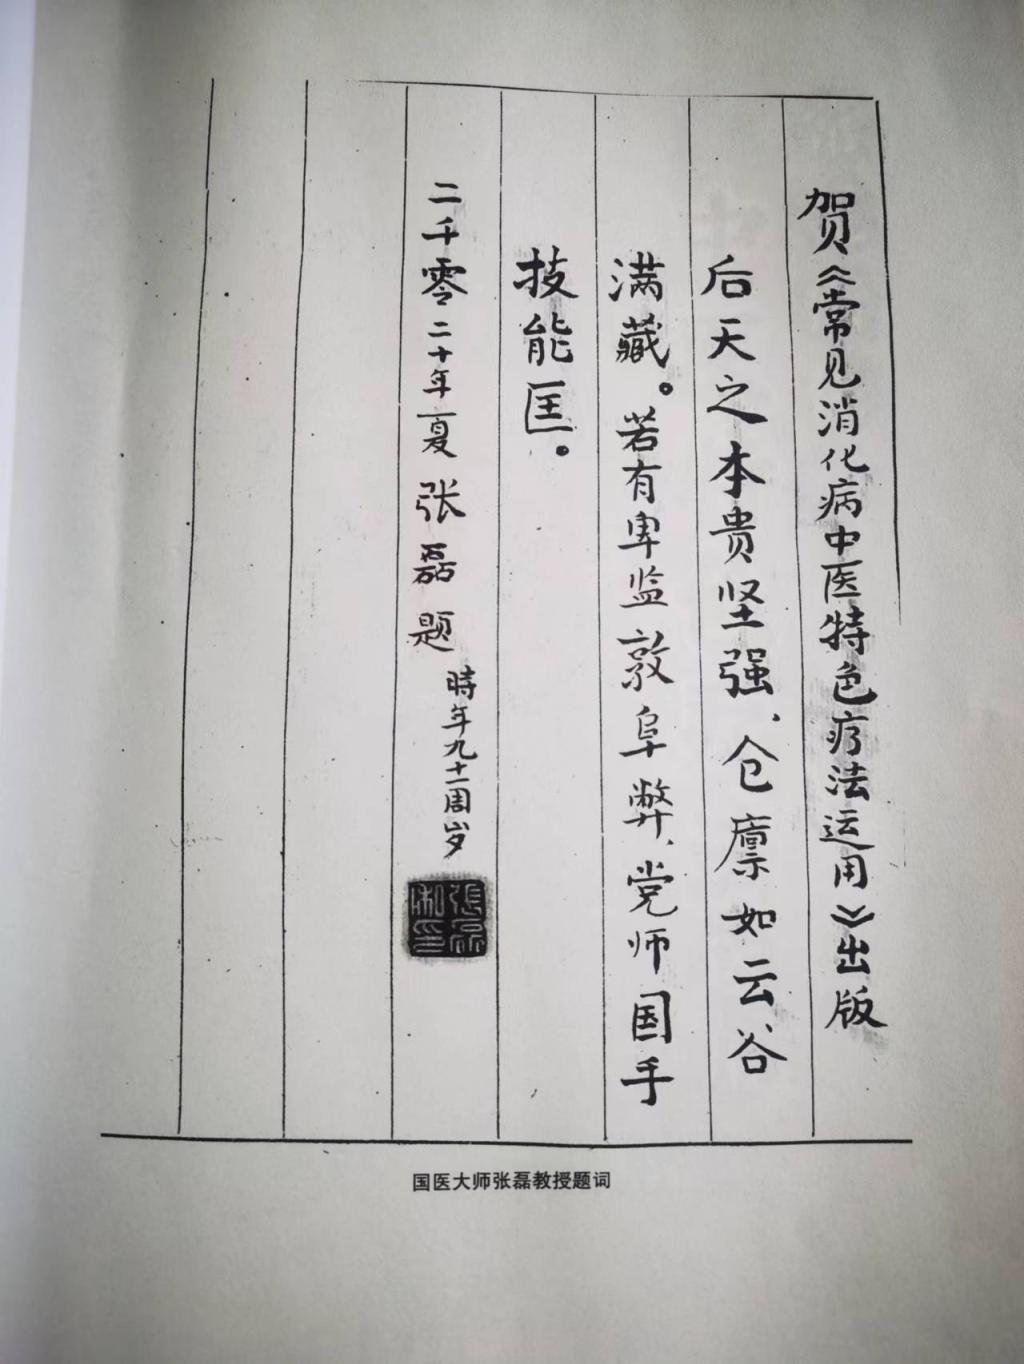 贺《常见消化病中医特色疗法运用》出版
后天之本贵坚强、仓廪如云谷
满藏。若有卑监敦阜弊、党师国手
技能匡。
二千零二十年夏 张磊题
時年九十一周岁
張磊私印
国医大师张磊教授题词